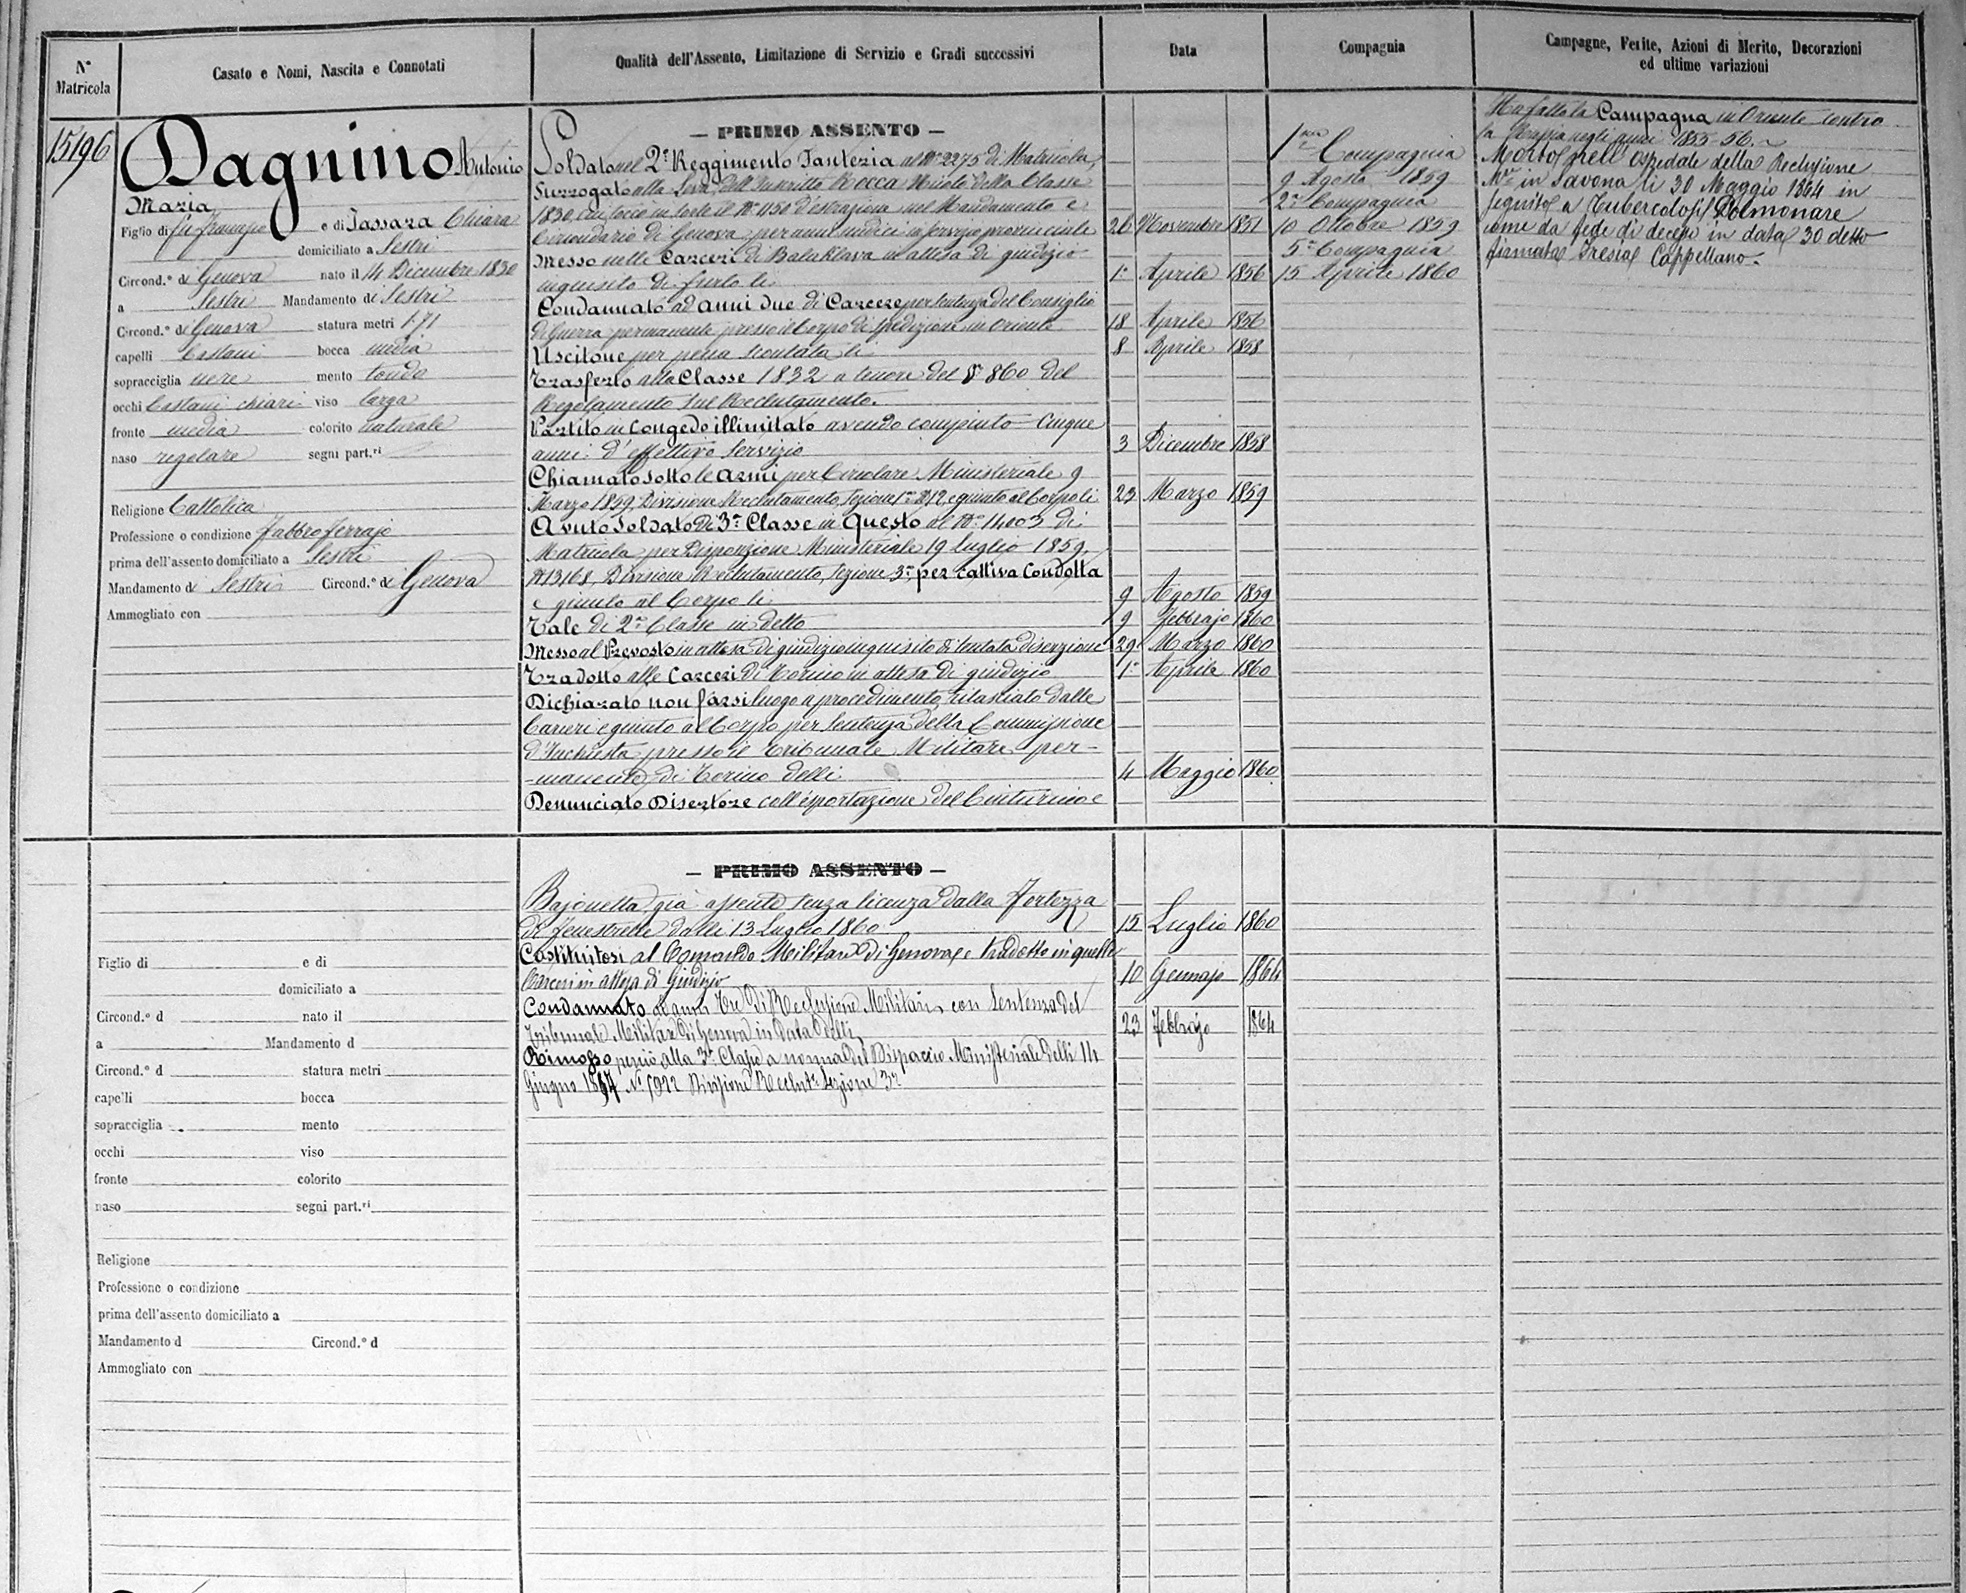 N° Matricola
Casato e Nomi, Nascita e Connotati
Qualità dell'Assento, Limitazione di Servizio e Gradi successivi
Data
Compagnia
Campagne, Ferite, Azioni di Merito, Decorazioni
ed ultime variazioni
15196
Dagnino Antonio
Maria
Figlio di fu Francesco e di Tassara Chiara
domiciliato a Sestri
Circond.° di Genova nato il 14 Dicembre 1830
a Sestri Mandamento di Sestri
Circond.° di Genova statura metri 1.71
capelli Castani bocca media
sopracciglia nere mento tondo
occhi Castani chiari viso largo
fronte media colorito naturale
naso regolare segni part.ri
Religione Cattolica
Professione o condizione Fabbro ferrajo
prima dell'assento domiciliato a Sestri
Mandamento di Sestri Circond.° di Genova
Ammogliato con
— PRIMO ASSENTO —
Soldato nel 2° Reggimento Fanteria al N° 2275 di Matricola,
Surrogato alla Leva dell'Inscritto Rocca Nicolò della Classe
1830, cui toccò in sorte il N° 1150 d'estrazione nel Mandamento e
Circondario di Genova, per anni undici in servizio provinciale 26 Novembre 1851
Messo nelle Carceri di Balaklava in attesa di giudizio
inquisito di furto li 1° Aprile 1856
Condannato ad anni due di Carcere per sentenza del Consiglio
di Guerra permanente presso il Corpo di Spedizione in Oriente 18 Aprile 1856
Uscitone per pena scontata li 8 Aprile 1858
Trasferto alla Classe 1832 a tenore del § 860 del
Regolamento sul Reclutamento.
Partito in congedo illimitato avendo compiuto cinque
anni d'effettivo Servizio 3 Dicembre 1858
Chiamato sotto le armi per Circolare Ministeriale 9
Marzo 1859, Divisione Reclutamento, Sezione 1a N° 12 e giunto al Corpo li 23 Marzo 1859
Avuto Soldato di 3a Classe in Questo al N° 14003 di
Matricola per Disposizione Ministeriale 19 Luglio 1859,
N° 13168, Divisione Reclutamento, Sezione 3a per cattiva condotta
e giunto al Corpo li 9 Agosto 1859
Tale di 2a Classe in detto 9 Febbrajo 1860
Messo al Prevosto in attesa di giudizio inquisito di tentata diserzione 29 Marzo 1860
Tradotto alle Carceri di Torino in attesa di giudizio 1° Aprile 1860
Dichiarato non farsi luogo a procedimento, rilasciato dalle
Carceri e giunto al Corpo per Sentenza della Commissione
d'Inchiesta presso il Tribunale Militare per-
-manente di Torino delli 4 Maggio 1860
Denunciato Disertore coll'esportazione del Cinturino e
1ma Compagnia
9 Agosto 1859
2a Compagnia
10 Ottobre 1859
5a Compagnia
15 Aprile 1860
Ha fatto la Campagna in Oriente contro
la Russia negli anni 1855-56.
Morto nell'ospedale della Reclusione
Mre in Savona li 30 Maggio 1864 in
seguito a Tubercolosi Polmonare
come da fede di decesso in data 30 detto
firmata Cappellano.
— PRIMO ASSENTO —
Bajonetta, già assente senza licenza dalla Fortezza
di Fenestrelle dalli 13 Luglio 1860 15 Luglio 1860
Costituitosi al Comando Militare di Genova e tradotto in quelle
Carceri in attesa di Giudizio 10 Gennajo 1864
Condannato ad anni Tre di Reclusione Militare con Sentenza del
Tribunale Militare di Genova in data delli 23 Febbrajo 1864
Rimosso perciò alla 3a Classe a norma del Dispaccio Ministeriale delli 14
Giugno N° 1922 Divisione Reclut° Sezione 3a
Figlio di e di
domiciliato a
Circond.° d nato il
a Mandamento d
Circond.° d statura metri
capelli bocca
sopracciglia mento
occhi viso
fronte colorito
naso segni part.ri
Religione
Professione o condizione
prima dell'assento domiciliato a
Mandamento d Circond.° d
Ammogliato con